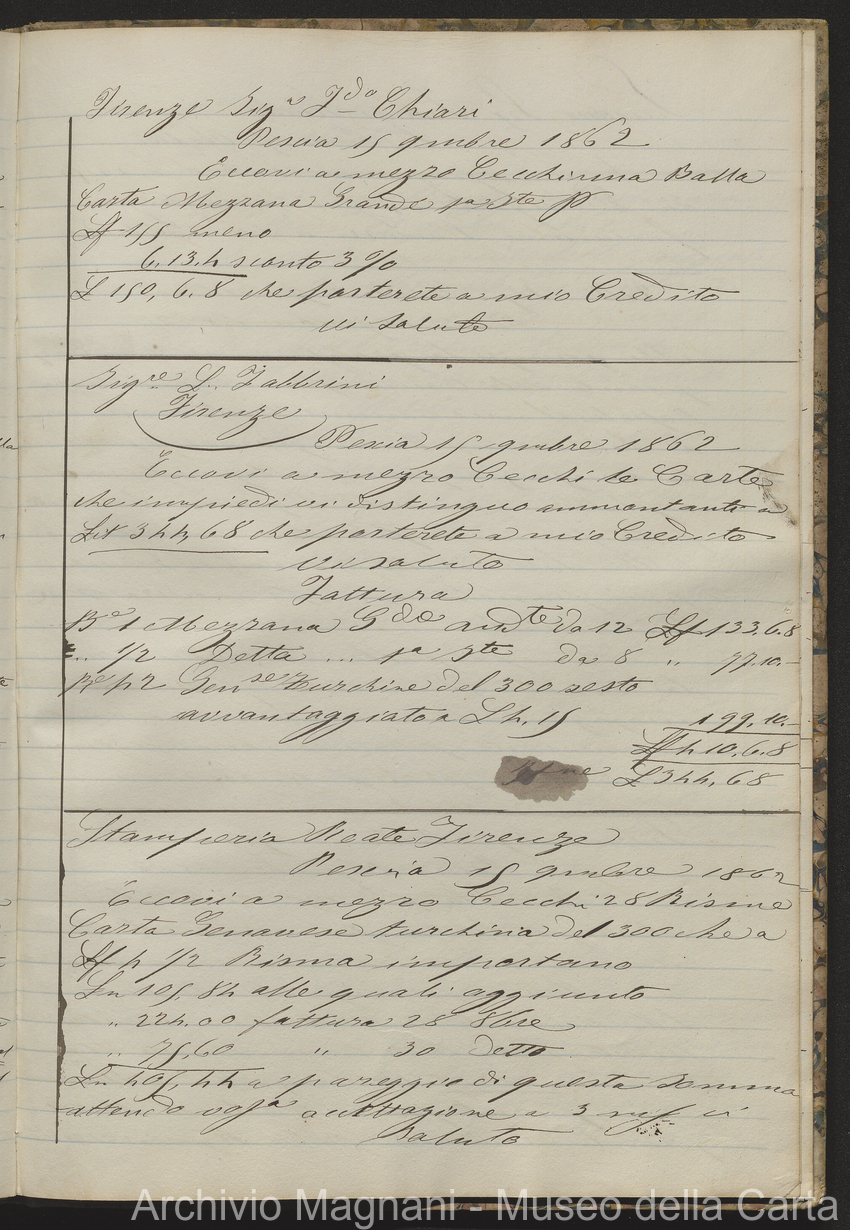 Firenze Sigr Fdo Chiari
Pescia 15 9mbre 1862
Eccovi a mezzo Cecchi una Balla
Carta Mezzana Grande 1a Ste P
Lf 155 meno
6.13.4 sconto 3%
L 150, 6.8 che porterete a mio Credito
vi saluto
Sigre L. Fabbrini
Firenze
Pescia 15 9mbre 1862
Eccovi a mezzo Cecchi le Carte
che in piedi vi distinguo ammontanti a
Lit 344,68 che porterete a mio Credito
vi saluto
Fattura
Ba 1 Mezzana Gde da 12 Lf 133.6.8
" 1/2 Detta ... 1a Ste da 8 " 77.10.-
turchine del 300 sesto
avvantaggiato a L 4.15 199.10.-
Lf 410.6.8
L 344,68
Stamperia Reale Firenze
Pescia 15 9mbre 1862
Eccovi a mezzo Cecchi 28 Risme
Carta Genovese turchina del 300 che a
Lf 4 1/2 Risma importano
Ln 105,84 alle quali aggiunto
" 224.00 fattura 28 8bre
" 75,60 " 30 detto
Ln 405,44 a pareggio di questa somma
attendo vostra a 3 vi
Saluto
Archivio Magnani - Museo della Carta